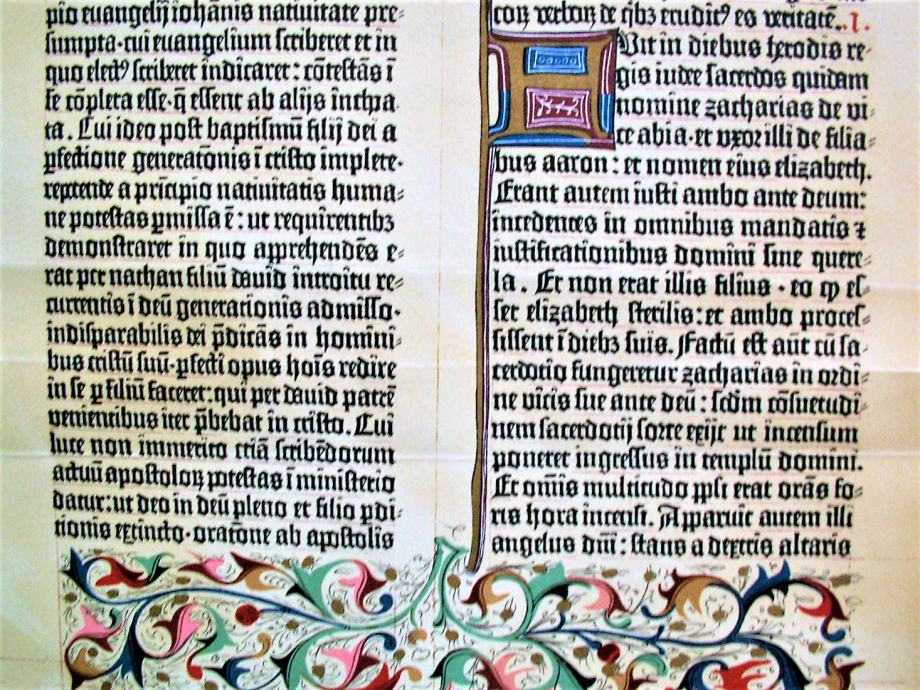 pio euangelij iohanis natiuitate pre⸗
sumpta·cui euangelium scriberet et in
quo elect⁹ scriberet indicaret : cōtestās ī
se cōpleta esse·q̄ essent ab alijs inchoa⸗
ta. Cui ideo post baptismū filij dei a
ꝑfectione generatōnis ī cristo implete·
repetende a prīcipio natiuitatis huma⸗
ne potestas ꝑmissa ē : ut requirentibꝫ
demonstraret in quo apprehendēs e⸗
rat per nathan filiū dauid introitu re⸗
currentis ī deū generationis admisso·
indisparabilis dei p̄dicās in homini⸗
bus cristū suū·ꝑfecti opus hoīs redire
in se ꝑ filiū faceret:qui per dauid patrē
venientibus iter p̄bebat in cristo. Cui
luce non immerito etiā scribēdorum
actuū apostoloꝝ potestas ī ministerio
datur:ut deo in deū pleno et filio ꝑdi⸗
tionis extincto·oratōne ab apostolis
coꝝ verboꝝ de qͥbꝫ erudit⁹ es veritatē. I.
Fuit in diebus herodis re⸗
gis iudee sacerdos quidam
nomine zacharias de vi⸗
ce abia·et vxor illi de filia⸗
bus aaron : et nomen eius elizabeth.
Erant autem iusti ambo ante deum:
incedentes in omnibus mandatis ⁊
iustificationibus domini sine quere⸗
la . Et non erat illis filius · eo ꝙ es⸗
set elizabeth sterilis:et ambo proces⸗
sissent ī diebꝫ suis. Factū est aūt cū sa⸗
cerdotio fungeretur zacharias in ordi⸗
ne vicis sue ante deū : scdm cōsuetudi⸗
nem sacerdotij sorte exijt ut incensum
poneret ingressus in templū domini.
Et omīs multitudo ppli erat orās fo⸗
ris hora incensi. Apparuit autem illi
angelus dnī : stans a dextris altaris